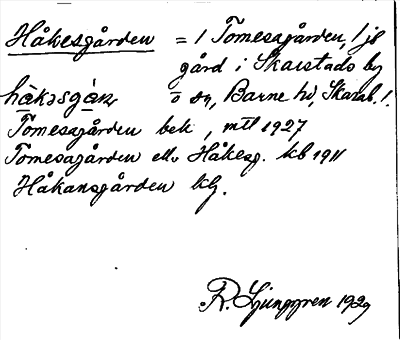 Håkesgården = / Tomesgården, / js
gård i Skarstads by
hàkasgàṇ o sn, Barne hd, Skarab. l.
Tomesgården bek, mtl 1927
Tomesagården ell. Håkesg. kb 1911
Håkansgården kg.
R. Ljunggren 1929